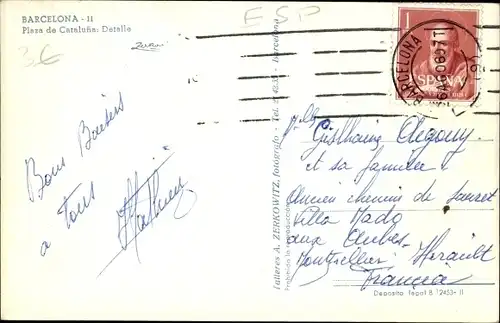 BARCELONA - 11
Plaza de Cataluña: Detalle
Zerko
36
ESP
BARCELONA
1
ESPAÑA
Bons Baisers
a Tous
Mathieu
Talleres A. ZERKOWITZ, fotógrafo - Tel. 2 4235 - Barcelona
Prohibida la reproducción
Mlle
Gislhaine
et sa famille
Ancien chemin de
Villa Mado
aux Aubes
Montpellier Herault
Francia
Deposito legal B 12453-11